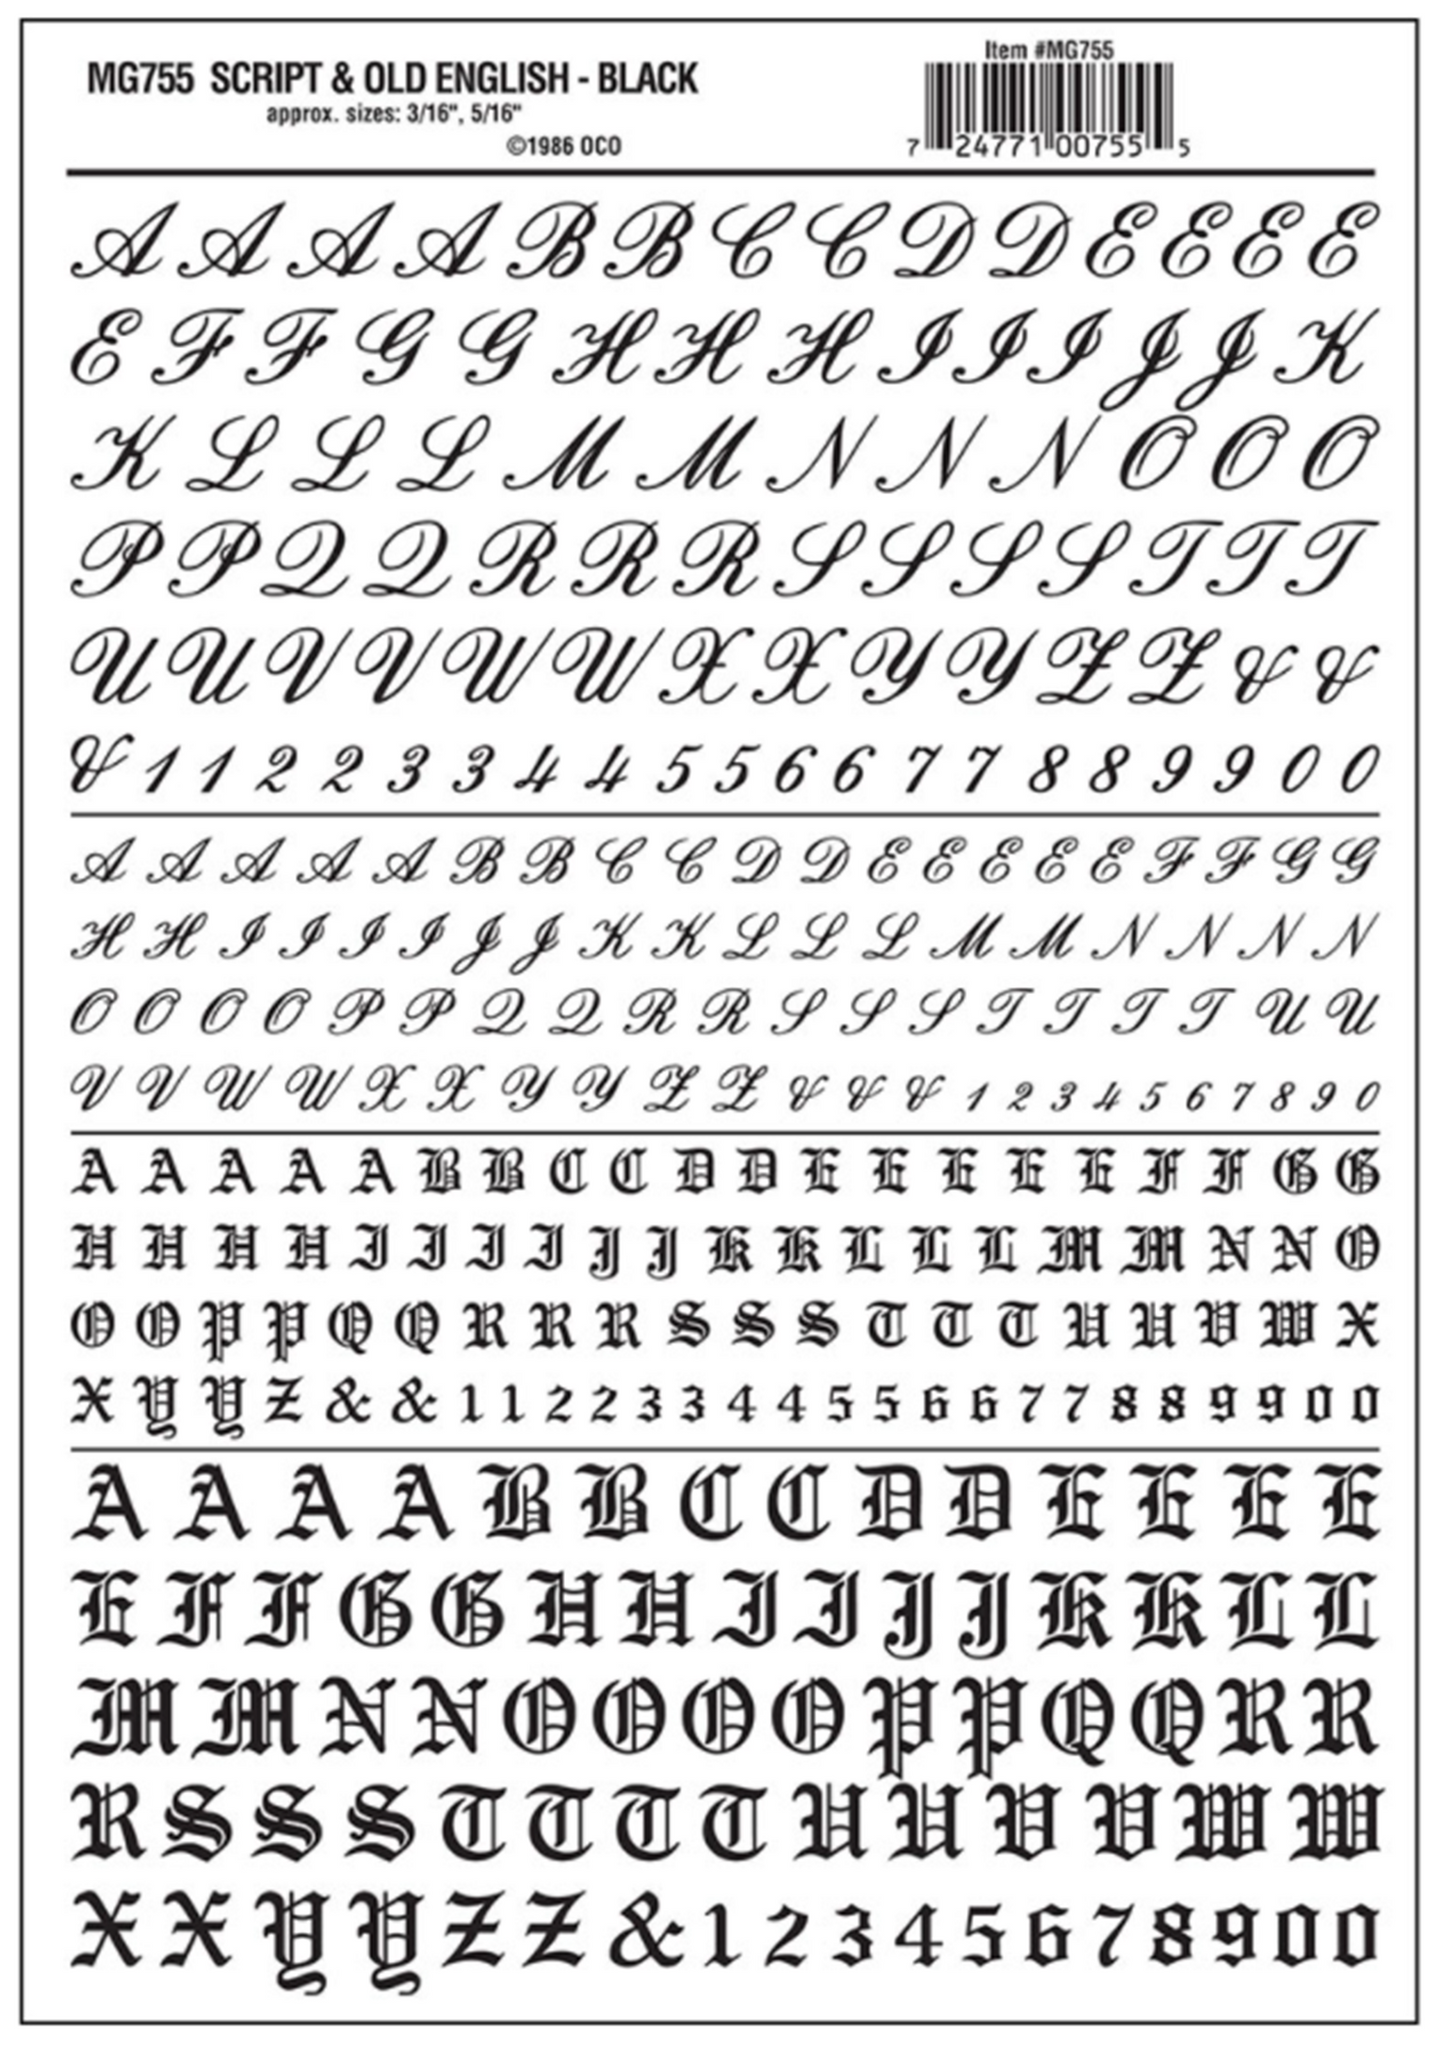 Item #MG755
MG755 SCRIPT & OLD ENGLISH - BLACK
approx. sizes: 3/16", 5/16"
©1986 OCO
7 24771 00755 5
A A A A B B C C D D E E E E
E F F G G H H H I I I J J K
K L L L M M N N N O O O
P P Q Q R R R S S S S T T T
U U V V W W X X Y Y Z Z & &
& 1 1 2 2 3 3 4 4 5 5 6 6 7 7 8 8 9 9 0 0
A A A A A B B C C D D E E E E E F F G G
H H I I I I J J K K L L L M M N N N N
O O O O P P Q Q R R S S S T T T T U U
V V W W X X Y Y Z Z & & & 1 2 3 4 5 6 7 8 9 0
A A A A A B B C C D D E E E E E F F G G
H H H H I I I I J J K K L L L M M N N O
O O P P Q Q R R R S S S T T T U U V W X
X Y Y Z & & 1 1 2 2 3 3 4 4 5 5 6 6 7 7 8 8 9 9 0 0
A A A A B B C C D D E E E E
E F F G G H H I I J J K K L L
M M N N O O O O P P Q Q R R
R S S S T T T T U U V V W W
X X Y Y Z Z & 1 2 3 4 5 6 7 8 9 0 0